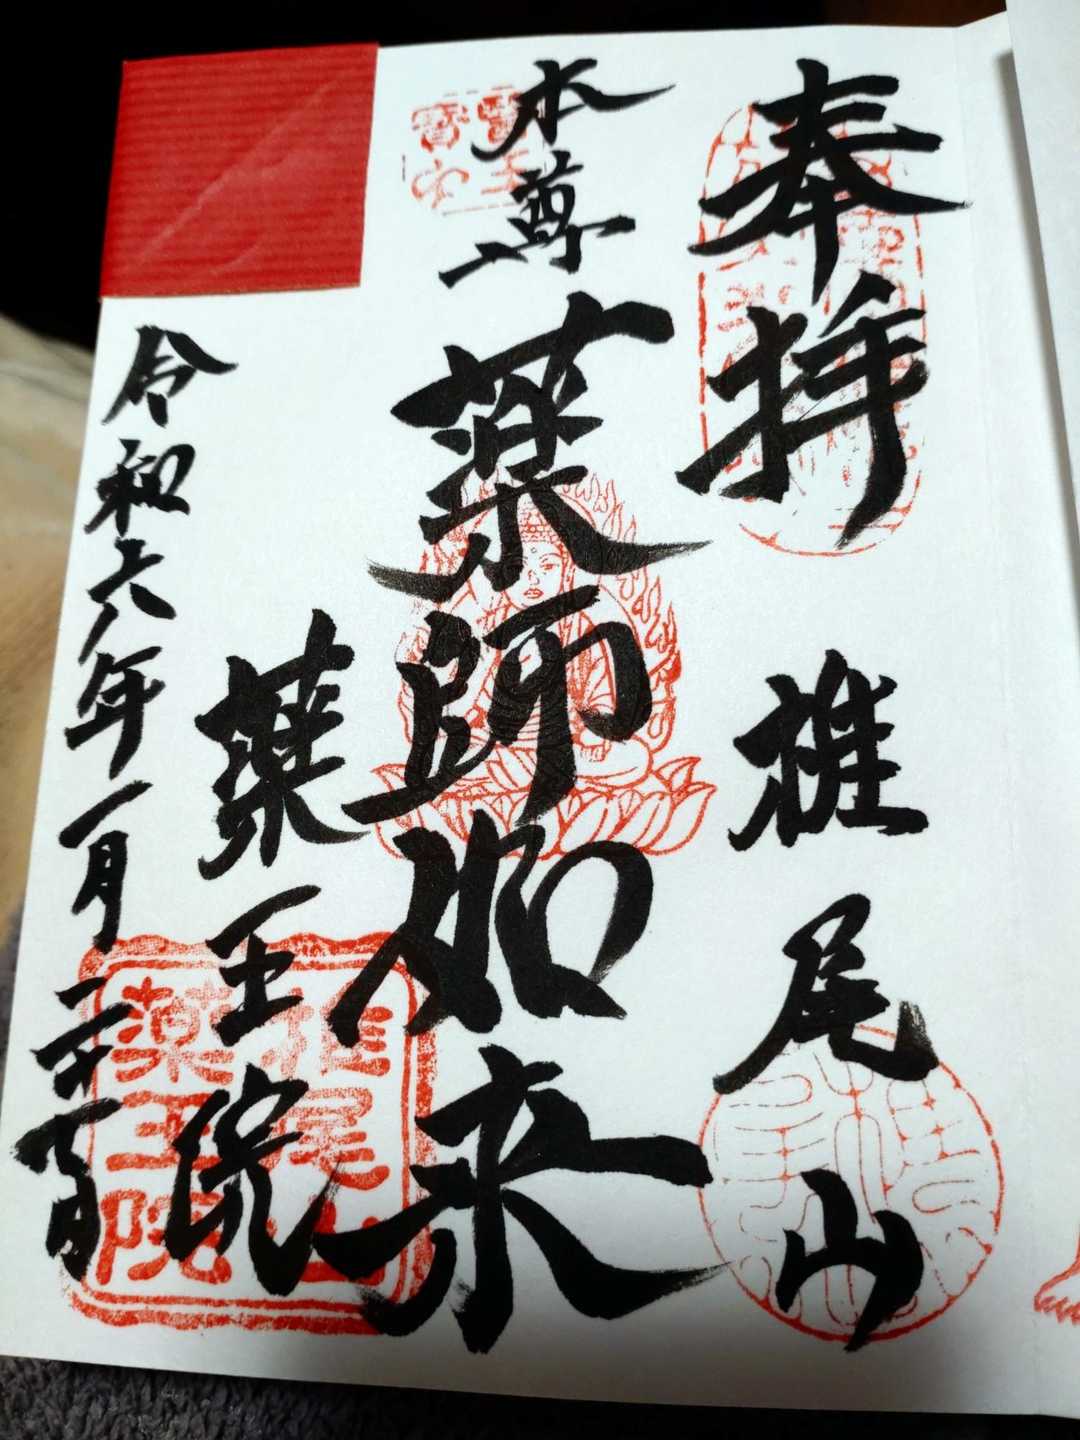 奉拝 椎尾山
本尊 薬師如来
薬王院
令和六年一月二十一日
椎尾山
薬王院